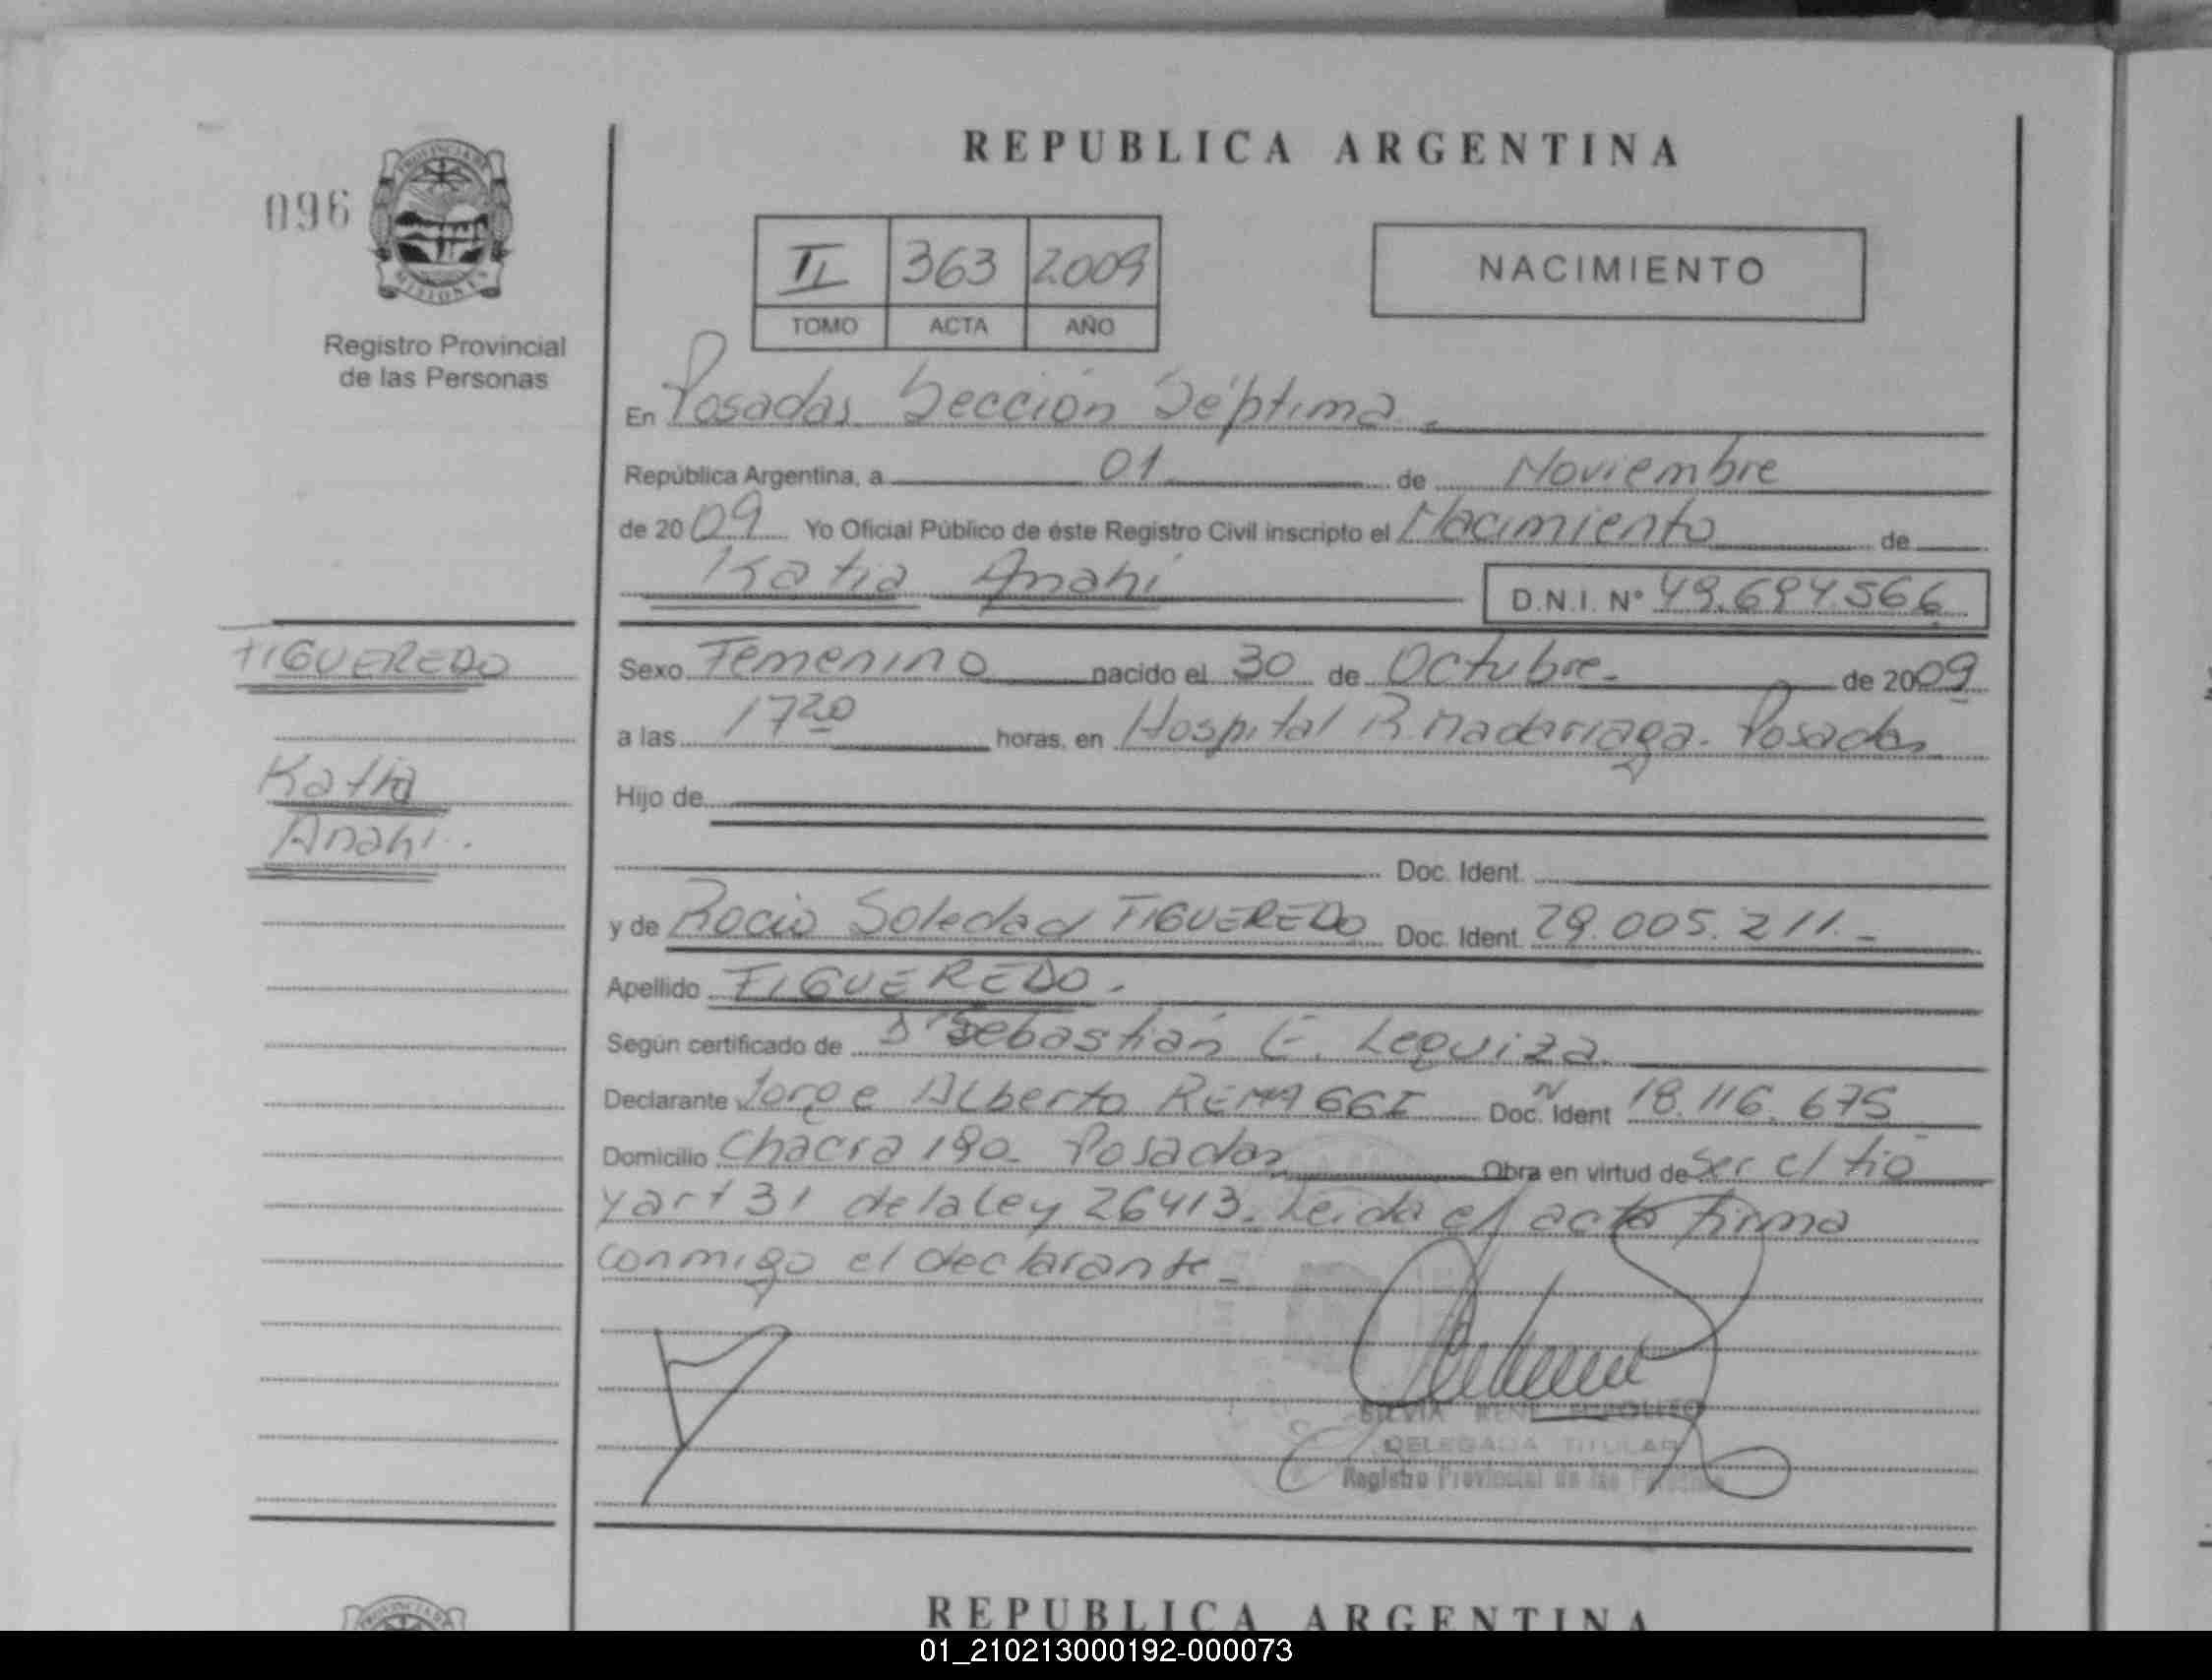 REPUBLICA ARGENTINA
096
PROVINCIA DE
MISIONES
Registro Provincial
de las Personas
II 363 2009
TOMO ACTA AÑO
NACIMIENTO
En Posadas Sección Séptima.
República Argentina, a 01 de Noviembre
de 2009 Yo Oficial Público de éste Registro Civil inscripto el Nacimiento de
Katia Anahi D.N.I. Nº 49.694.566
FIGUEREDO
Katia
Anahi.
Sexo Femenino nacido el 30 de Octubre de 2009
a las 17 20 horas, en Hospital R. Madariaga. Posadas
Hijo de
Doc. Ident.
y de Rocio Soledad FIGUEREDO Doc. Ident. 29.005.211.-
Apellido FIGUEREDO.
Según certificado de Dr Sebastián E. Lequiza
Declarante Jorge Alberto REMAGGI Doc. Ident N 18.116.675
Domicilio Chacra 190 Posadas Obra en virtud de Ser el tio
y art 31 de la Ley 26413. Leida el acta firma
conmigo el declarante.
SILVIA RENE
DELEGADA TITULAR
Registro Provincial de las Personas
REPUBLICA ARGENTINA
01_210213000192-000073